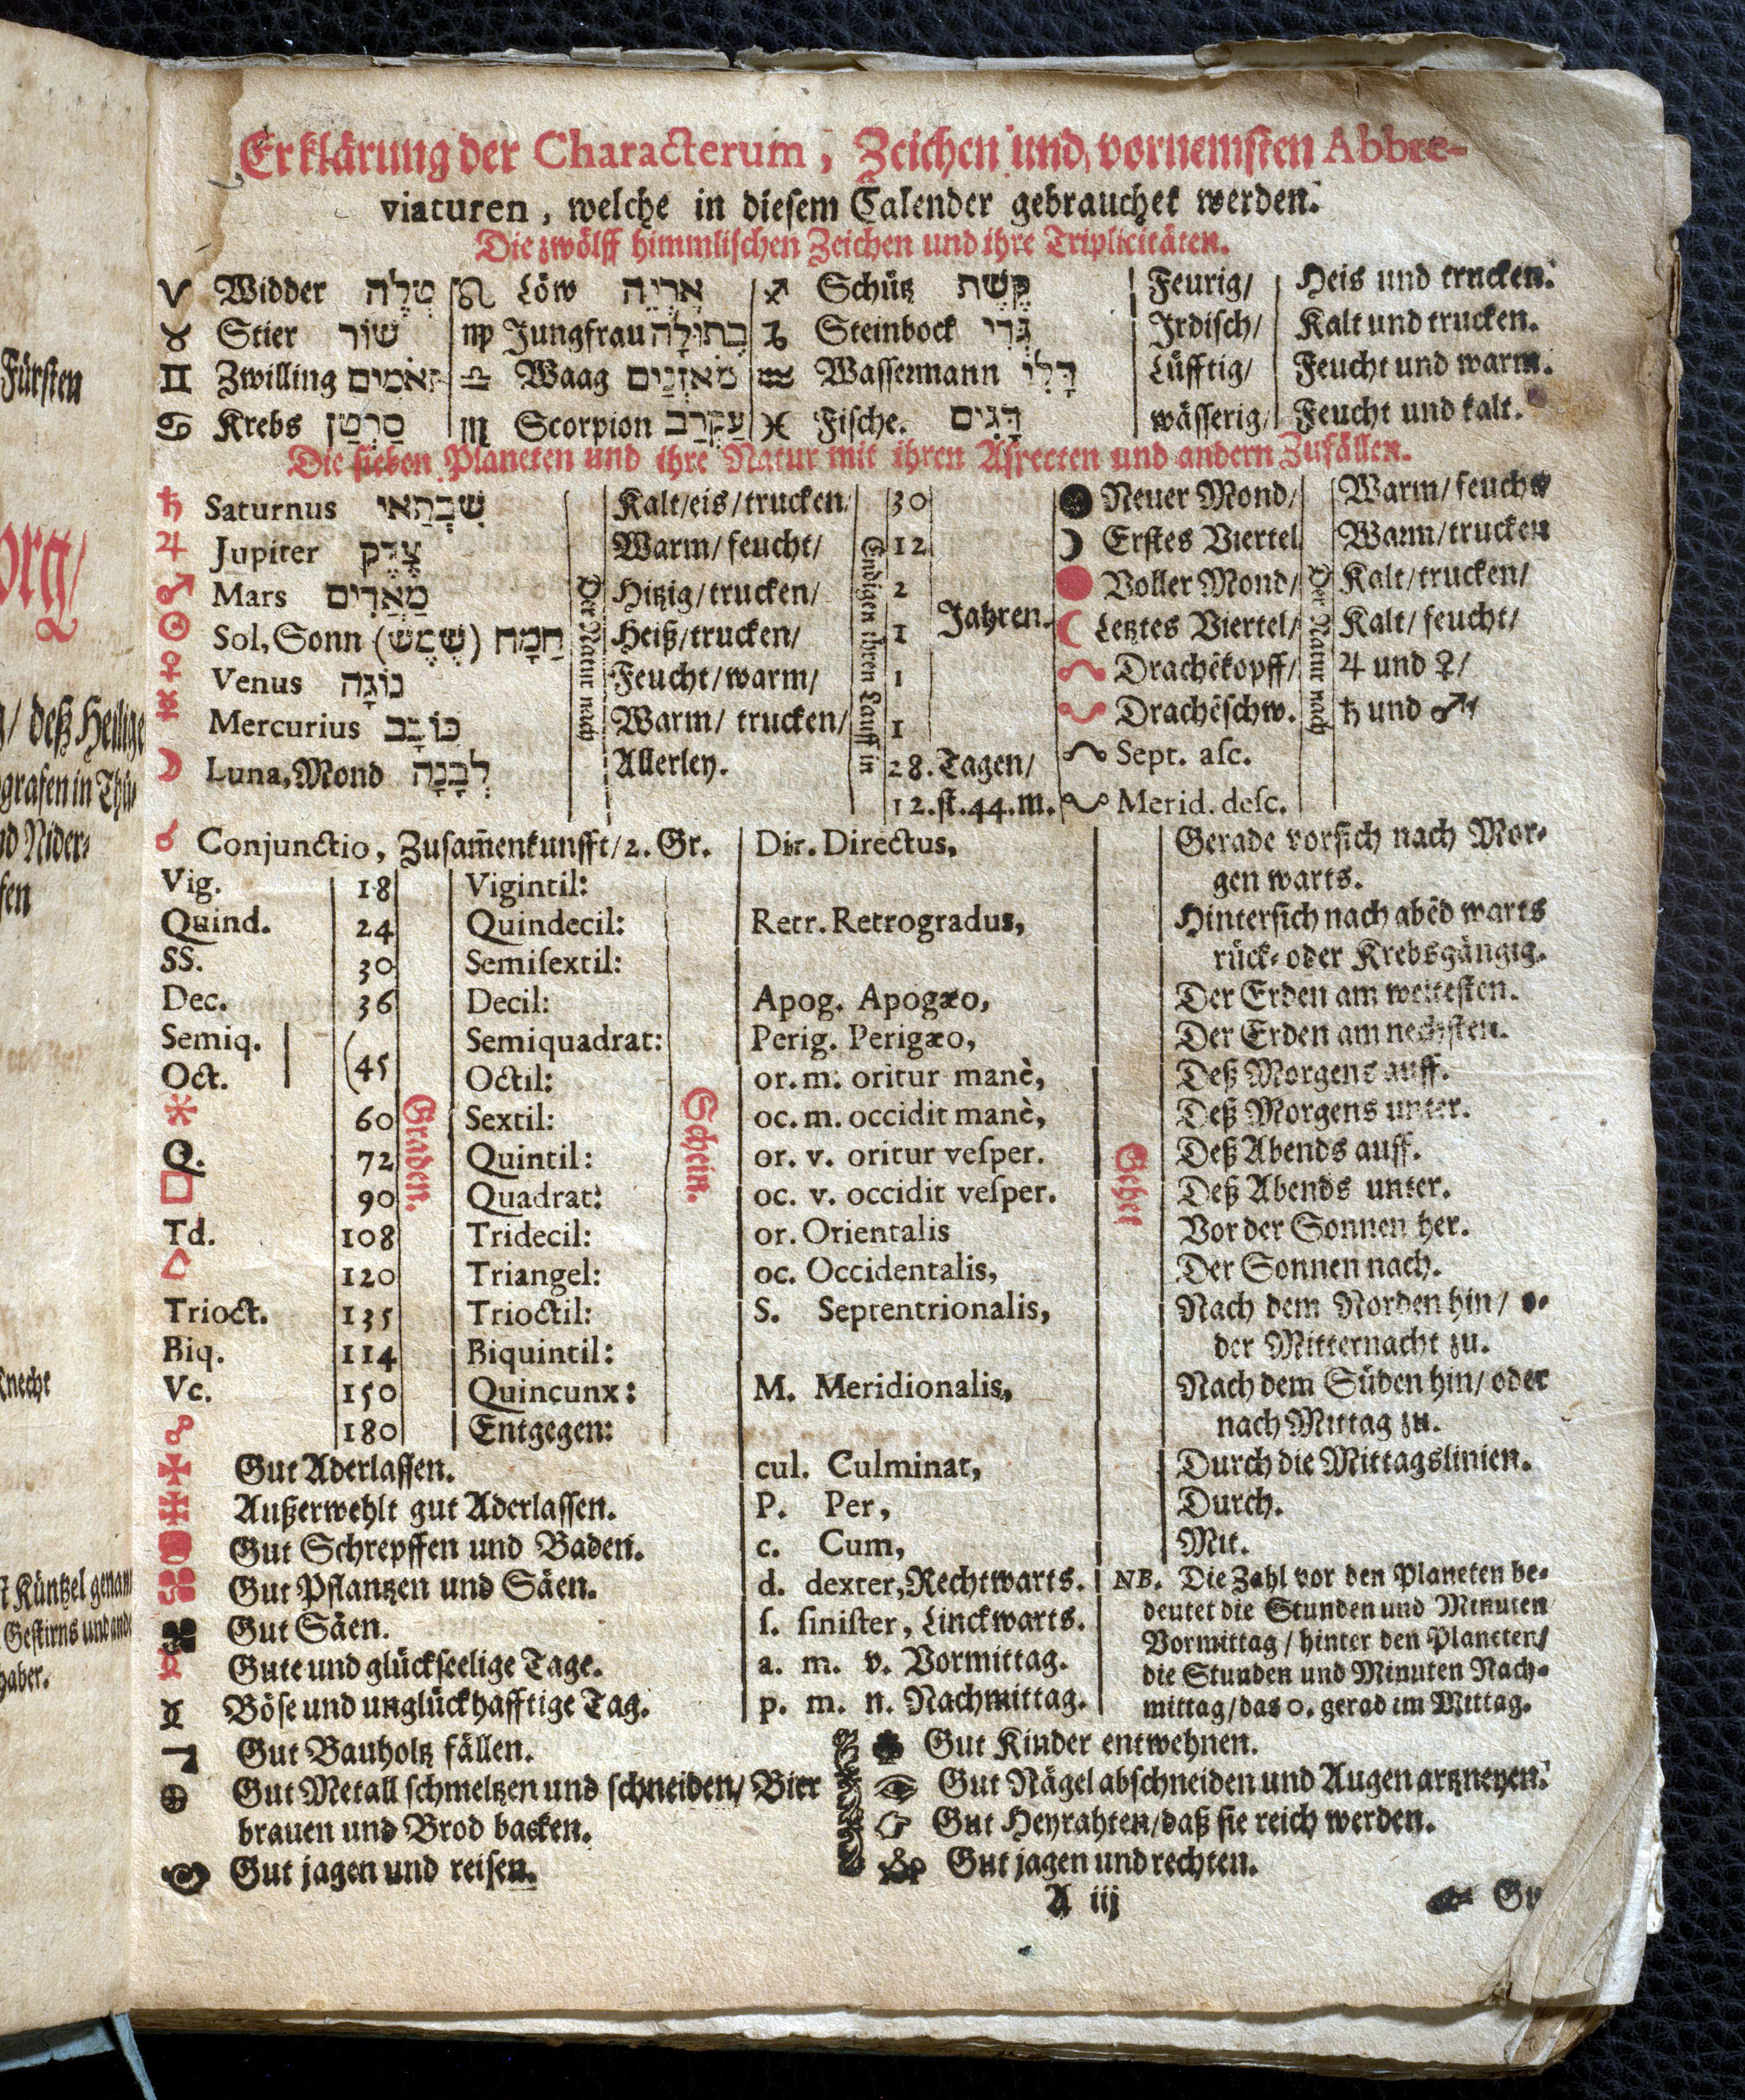 Erklärung der Characterum, Zeichen und vornemsten Abbre-
viaturen, welche in diesem Calender gebrauchet werden.
Die zwölff himmlischen Zeichen und ihre Triplicitäten.
♈ Widder טְלֶה ♌ Löw אַרְיֵה ♐ Schütz קֶשֶׁת Feurig/ Heis und trucken.
♉ Stier שׁוֹר ♍ Jungfrau בְתוּלָה ♑ Steinbock גְּדִי Irdisch/ Kalt und trucken.
♊ Zwilling תְּאֹמִים ♎ Waag מֹאזְנַיִם ♒ Wassermann דְּלִי Lüfftig/ Feucht und warm.
♋ Krebs סַרְטַן ♏ Scorpion עַקְרַב ♓ Fische. דָּגִים wässerig/ Feucht und kalt.
Die sieben Planeten und ihre Natur mit ihren Aspecten und andern Zufällen.
♄ Saturnus שַׁבְּתַאי Kalt/eis/trucken/ 30 Neuer Mond/ Warm/feucht
♃ Jupiter צֶדֶק Warm/feucht/ 12 ☽ Erstes Viertel Warm/trucken
♂ Mars מַאֲדִים Hitzig/trucken/ 2 Voller Mond/ Kalt/trucken/
☉ Sol, Sonn (שֶׁמֶשׁ) חַמָּה Heiß/trucken/ 1 Jahren. ☾ Letztes Viertel/ Kalt/feucht/
♀ Venus נוֹגָה Feucht/warm/ 1 ☊ Drachēkopff/ ♃ und ♀/
☿ Mercurius כּוֹכָב Warm/trucken/ 1 ☋ Drachēschw. ♄ und ♂/
☽ Luna, Mond לְבָנָה Allerley. 28. Tagen/ Sept. asc.
12. st. 44. m. Merid. desc.
Der Natur nach
Endigen ihren Lauff in
Der Natur nach
☌ Conjunctio, Zusam̄enkunfft/2. Gr. Dir. Directus, Gerade vorsich nach Mor-
gen warts.
Vig. 18 Vigintil:
Quind. 24 Quindecil: Retr. Retrogradus, Hintersich nach abēd warts
SS. 30 Semisextil: rück- oder Krebsgängig.
Dec. 36 Decil: Apog. Apogæo, Der Erden am weitesten.
Semiq. Semiquadrat: Perig. Perigæo, Der Erden am nechsten.
Oct. (45 Octil: or. m. oritur manè, Deß Morgens auff.
⚹ 60 Sextil: oc. m. occidit manè, Deß Morgens unter.
Q. 72 Quintil: or. v. oritur vesper. Deß Abends auff.
□ 90 Quadrat: oc. v. occidit vesper. Deß Abends unter.
Td. 108 Tridecil: or. Orientalis Vor der Sonnen her.
△ 120 Triangel: oc. Occidentalis, Der Sonnen nach.
Trioct. 135 Trioctil: S. Septentrionalis, Nach dem Norden hin/ o-
Biq. 114 Biquintil: der Mitternacht zu.
Vc. 150 Quincunx: M. Meridionalis, Nach dem Süden hin/oder
☍ 180 Entgegen: nach Mittag zu.
Graden.
Schein.
Gehet
Gut Aderlassen. cul. Culminat, Durch die Mittagslinien.
Außerwehlt gut Aderlassen. P. Per, Durch.
Gut Schrepffen und Baden. c. Cum, Mit.
Gut Pflantzen und Säen. d. dexter, Rechtwarts. NB. Die Zahl vor den Planeten be-
Gut Säen. s. sinister, Linckwarts. deutet die Stunden und Minuten
Gute und glückseelige Tage. a. m. v. Vormittag. Vormittag/hinter den Planeten/
Böse und unglückhafftige Tag. p. m. n. Nachmittag. die Stunden und Minuten Nach-
mittag/das 0. gerad im Mittag.
Gut Bauholtz fällen. Gut Kinder entwehnen.
Gut Metall schmeltzen und schneiden/Bier Gut Nägel abschneiden und Augen artzneyen.
brauen und Brod backen. Gut Heyrahten/daß sie reich werden.
Gut jagen und reisen. Gut jagen und rechten.
A iij
Fürsten
org/
deß Heilige
grafen in Thü-
nd Nider-
sen
Knecht
Küntzel genam
Gestirns und
haber.